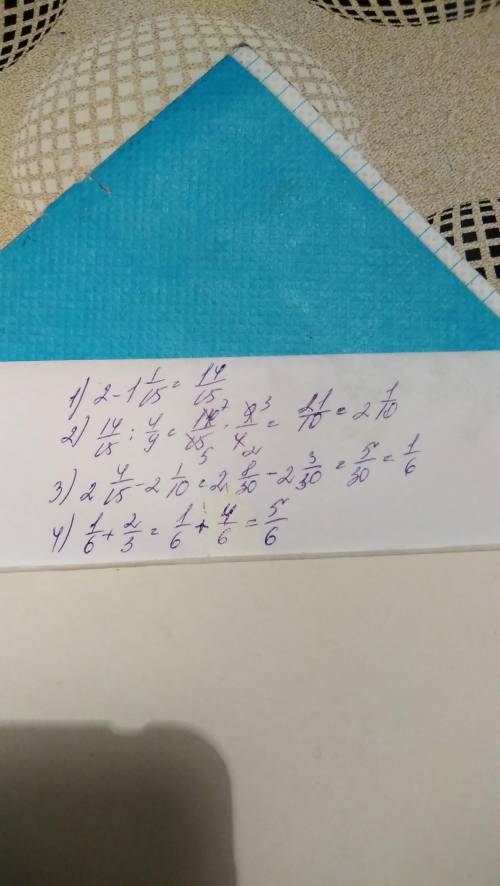 1) 2 - 1 1/15 = 14/15
2) 14/15 : 4/9 = 14⁷/15₅ · 9³/4₂ = 21/10 = 2 1/10
3) 2 4/15 - 2 1/10 = 2 8/30 - 2 3/30 = 5/30 = 1/6
4) 1/6 + 2/3 = 1/6 + 4/6 = 5/6